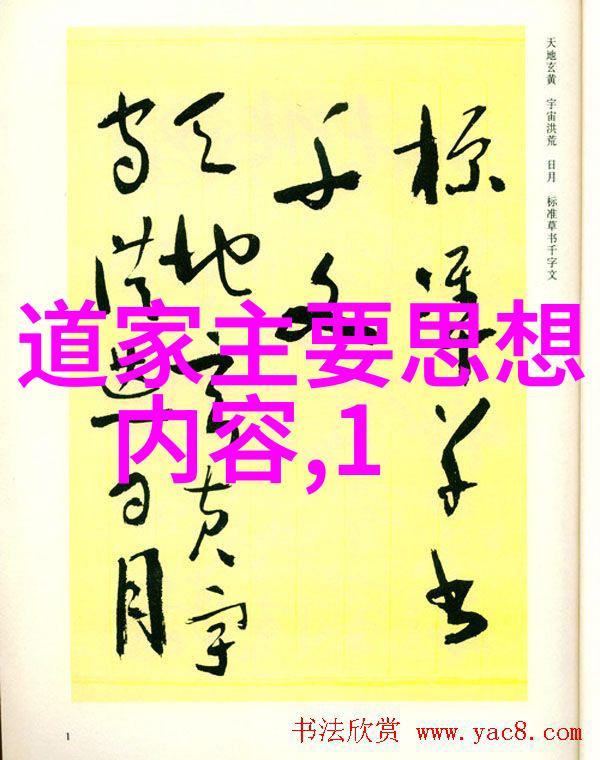 天地玄黄 宇宙洪荒 日月 标准草书千字文
標準草書
千文
天地玄黄宇
宙洪荒日月
道家主要思想
内容,1
1
书法欣赏 www.yac8.com